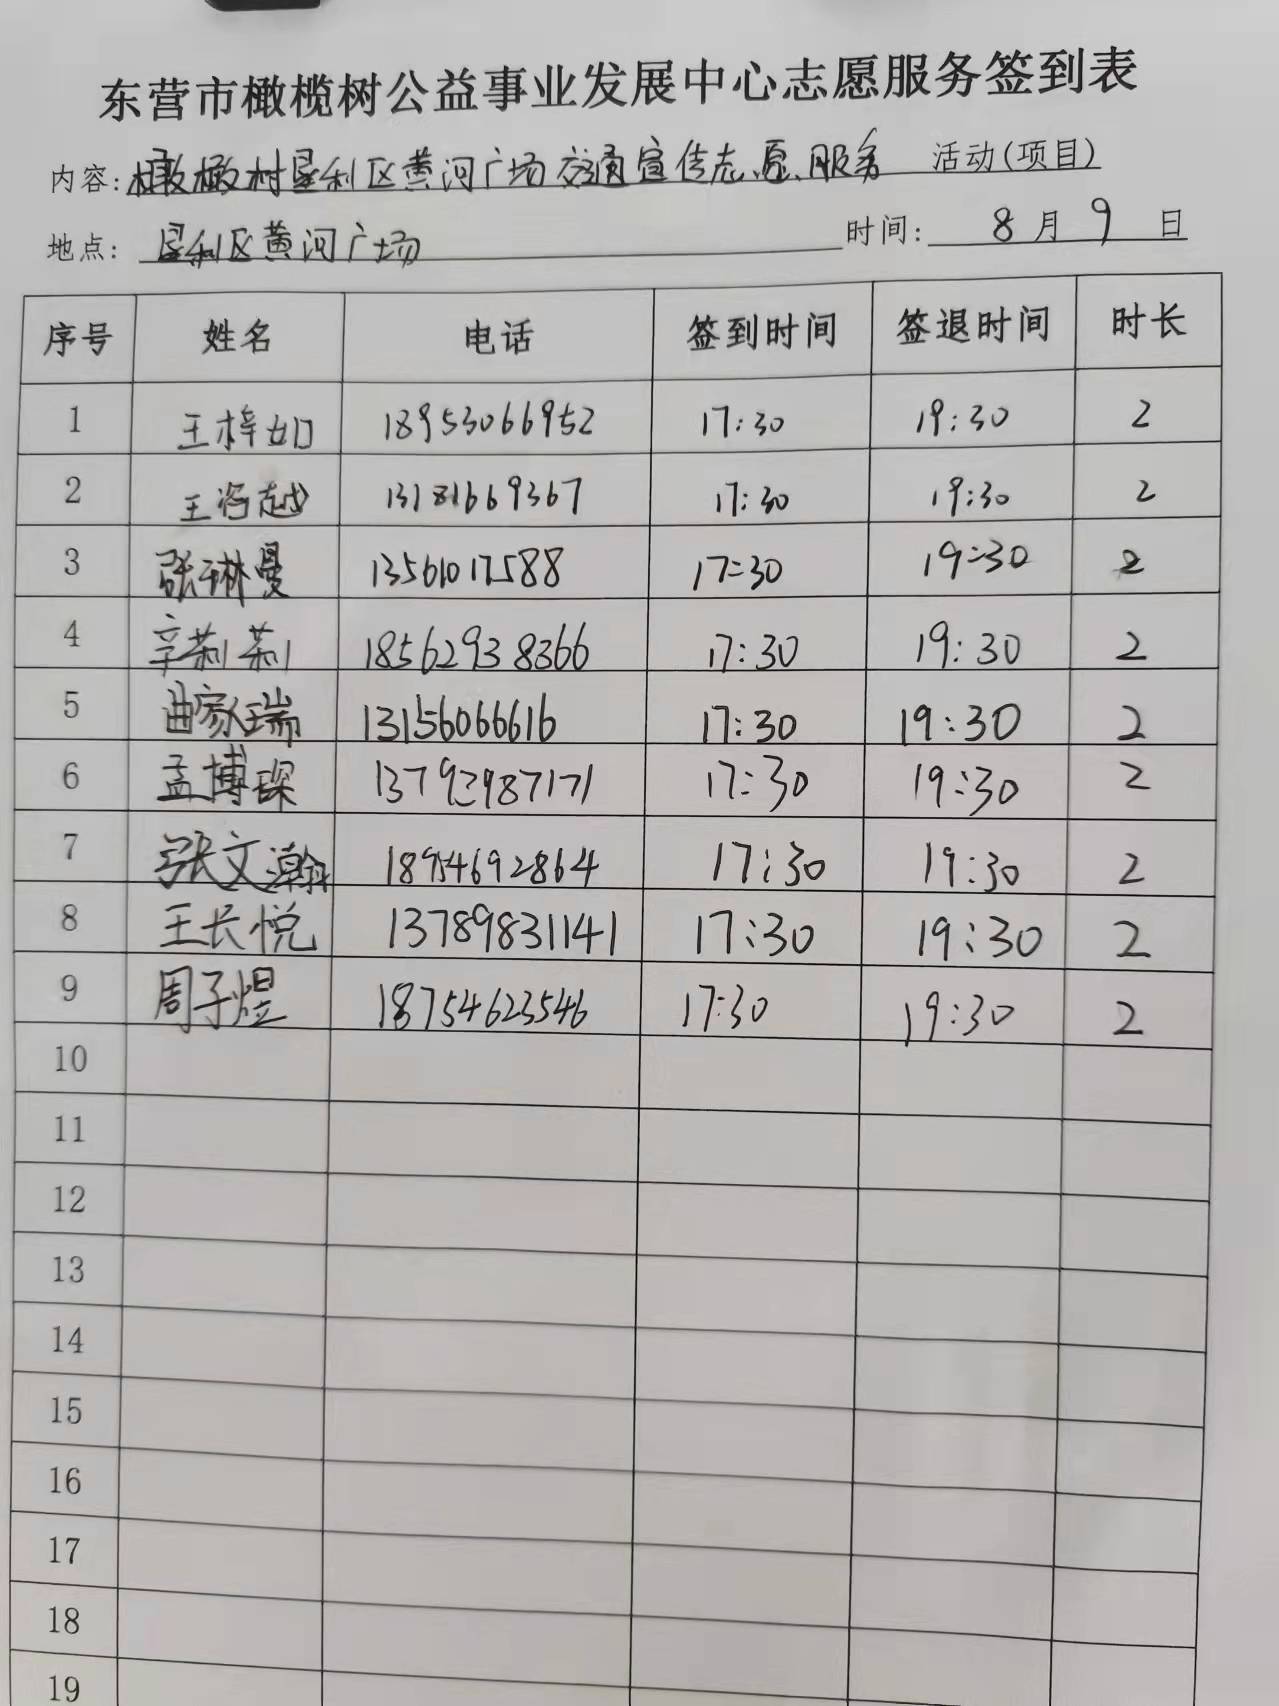 东营市橄榄树公益事业发展中心志愿服务签到表
内容: 橄榄树垦利区黄河广场交通宣传志愿服务 活动(项目)
地点: 垦利区黄河广场 时间: 8月9日
序号 姓名 电话 签到时间 签退时间 时长
1 王梓如 18953066952 17:30 19:30 2
2 王 越 13181669367 17:30 19:30 2
3 张琳曼 13561017588 17:30 19:30 2
4 辛莉莉 18562938366 17:30 19:30 2
5 曲家瑞 13156066616 17:30 19:30 2
6 孟博琛 13792987171 17:30 19:30 2
7 张文瀚 18954692864 17:30 19:30 2
8 王长悦 13789831141 17:30 19:30 2
9 周子煜 18754623546 17:30 19:30 2
10
11
12
13
14
15
16
17
18
19